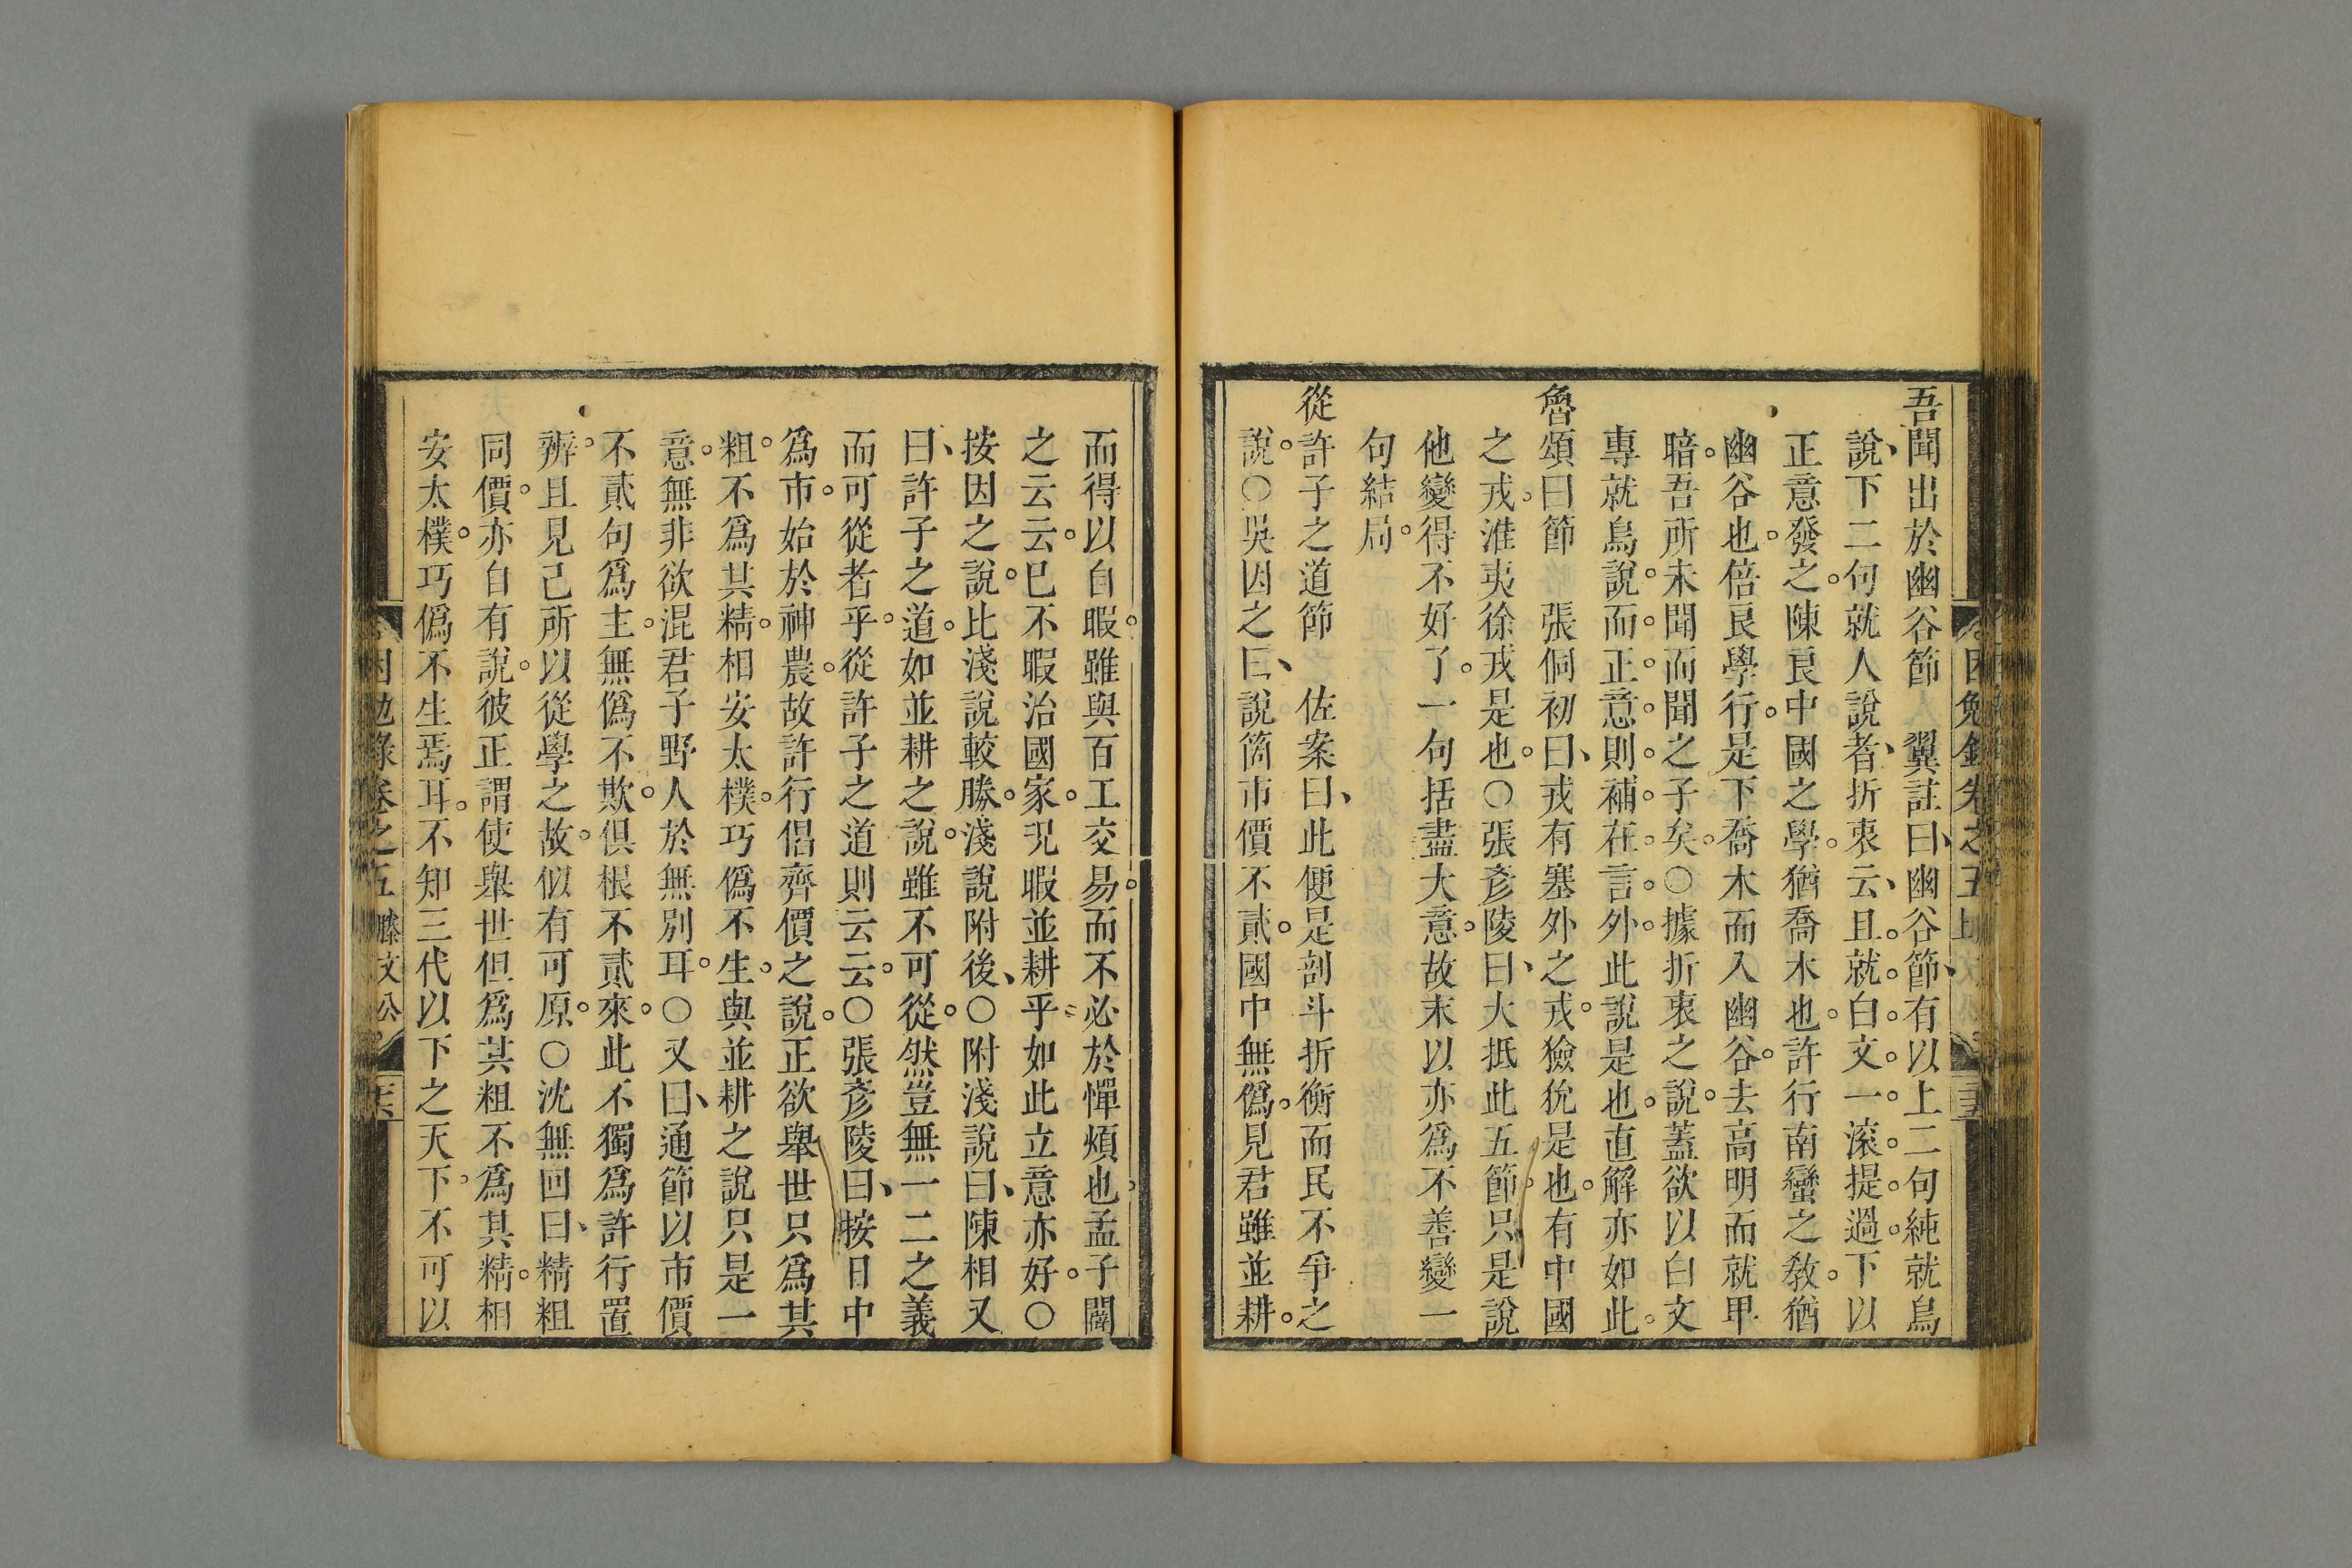 吾聞出於幽谷節　翼註曰、幽谷節、有以上二句純就鳥
說、下二句就人說者、折衷云、且就白文一滚提過。下以
正意發之。陳良中國之學。猶喬木也。許行南蠻之敎。猶
幽谷也。倍良學行。是下喬木而入幽谷。去高明而就甲
暗。吾所未聞而聞之子矣。○據折衷之說。蓋欲以白文
專就鳥說。而正意則補在言外。此說是也。直解亦如此。
魯頌曰節　張侗初曰、戎有塞外之戎。獫狁是也。有中國
之戎。淮夷徐戎是也。○張彥陵曰、大抵此五節。只是說
他變得不好了。一句括盡大意。故末以亦爲不善變一
句結局。
從許子之道節　佐案曰、此便是剖斗折衡而民不爭之
說。○吳因之曰、說箇市價不貳。國中無僞。見君雖並耕。
而得以自暇。雖與百工交易。而不必於憚煩也。孟子闢
之云云。已不暇治國家。況暇並耕乎。如此立意亦好。○
按因之說。比淺說較勝。淺說附後、○附淺說曰、陳相又
曰、許子之道。如並耕之說。雖不可從。然豈無一二之義
而可從者乎。從許子之道則云云。○張彥陵曰、按日中
爲市。始於神農。故許行倡齊價之說。正欲舉世只爲其
粗。不爲其精。相安太樸。巧僞不生。與並耕之說只是一
意。無非欲混君子野人於無別耳。○又曰、通節以市價
不貳句爲主。無僞不欺。俱根不貳來。此不獨爲許行置
辨。且見己所以從學之故。似有可原。○沈無回曰、精粗
同價。亦自有說。彼正謂使舉世但爲其粗。不爲其精。相
安太樸。巧僞不生焉耳。不知三代以下之天下。不可以
困勉錄卷之五　滕文公